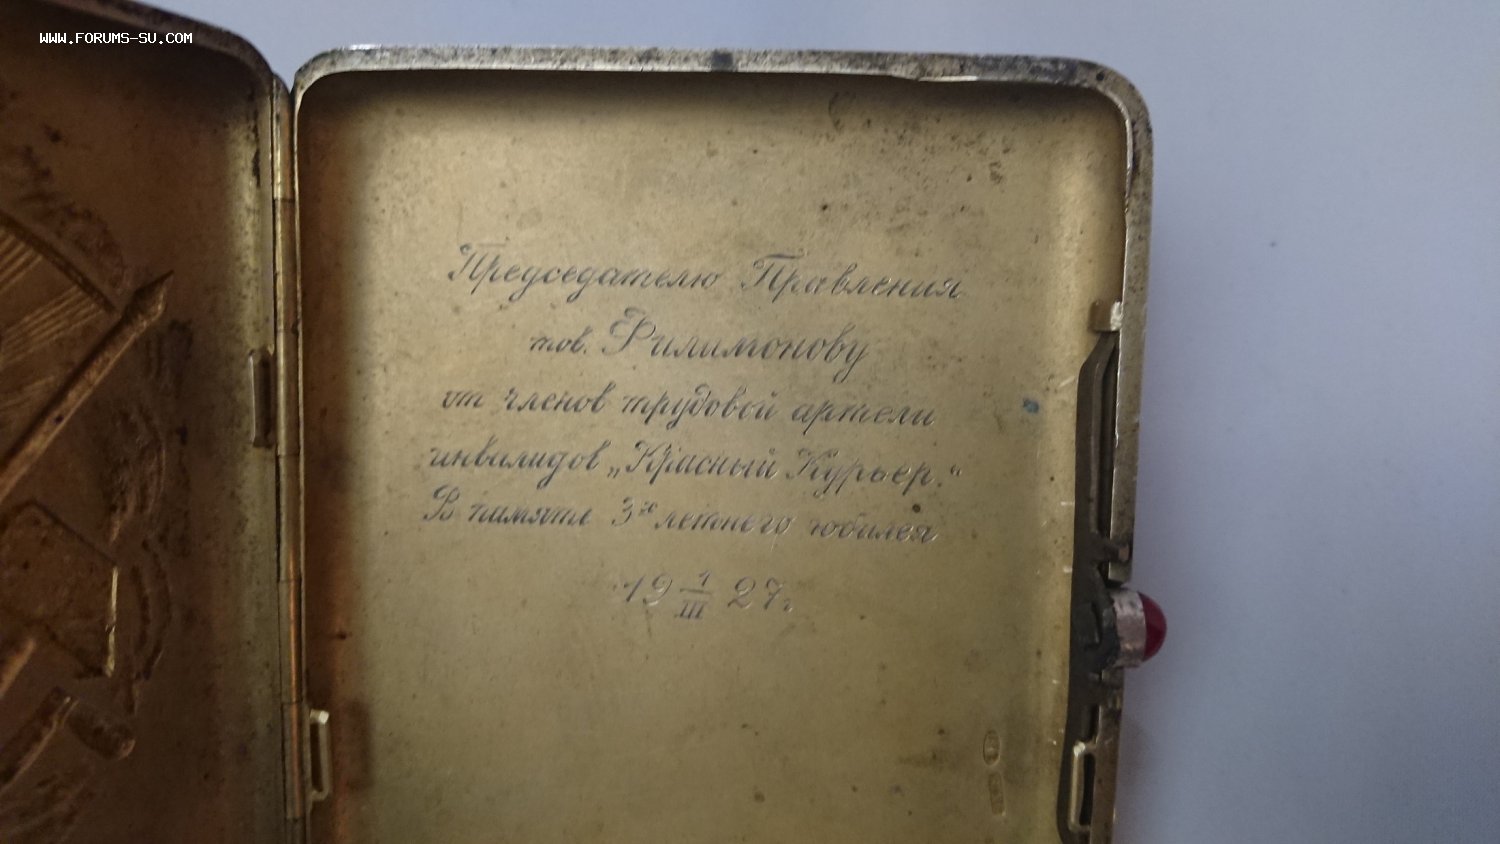 WWW.FORUMS-SU.COM
Председателю Правления
тов. Филимонову
от членов трудовой артели
инвалидов „Красный Курьер."
В память 3х летнего юбилея
19 1/III 27г.